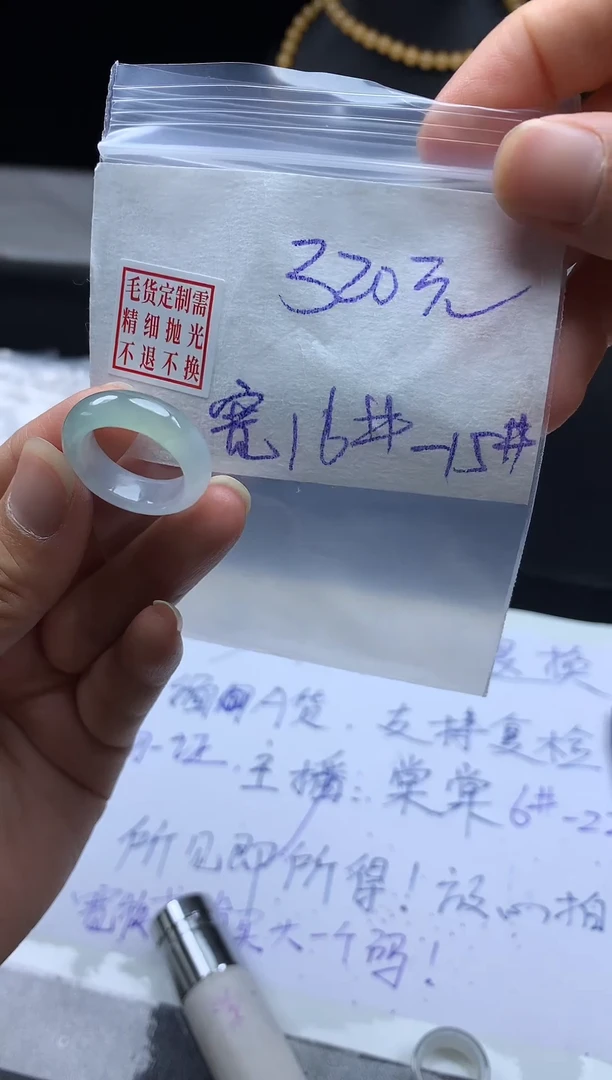 320元
毛货定制需
精细抛光
不退不换
宽16#-15#
退换
A货.支持复检
一证.主播:棠棠6#-22
所见即所得!放心拍
宽 买大一个码!